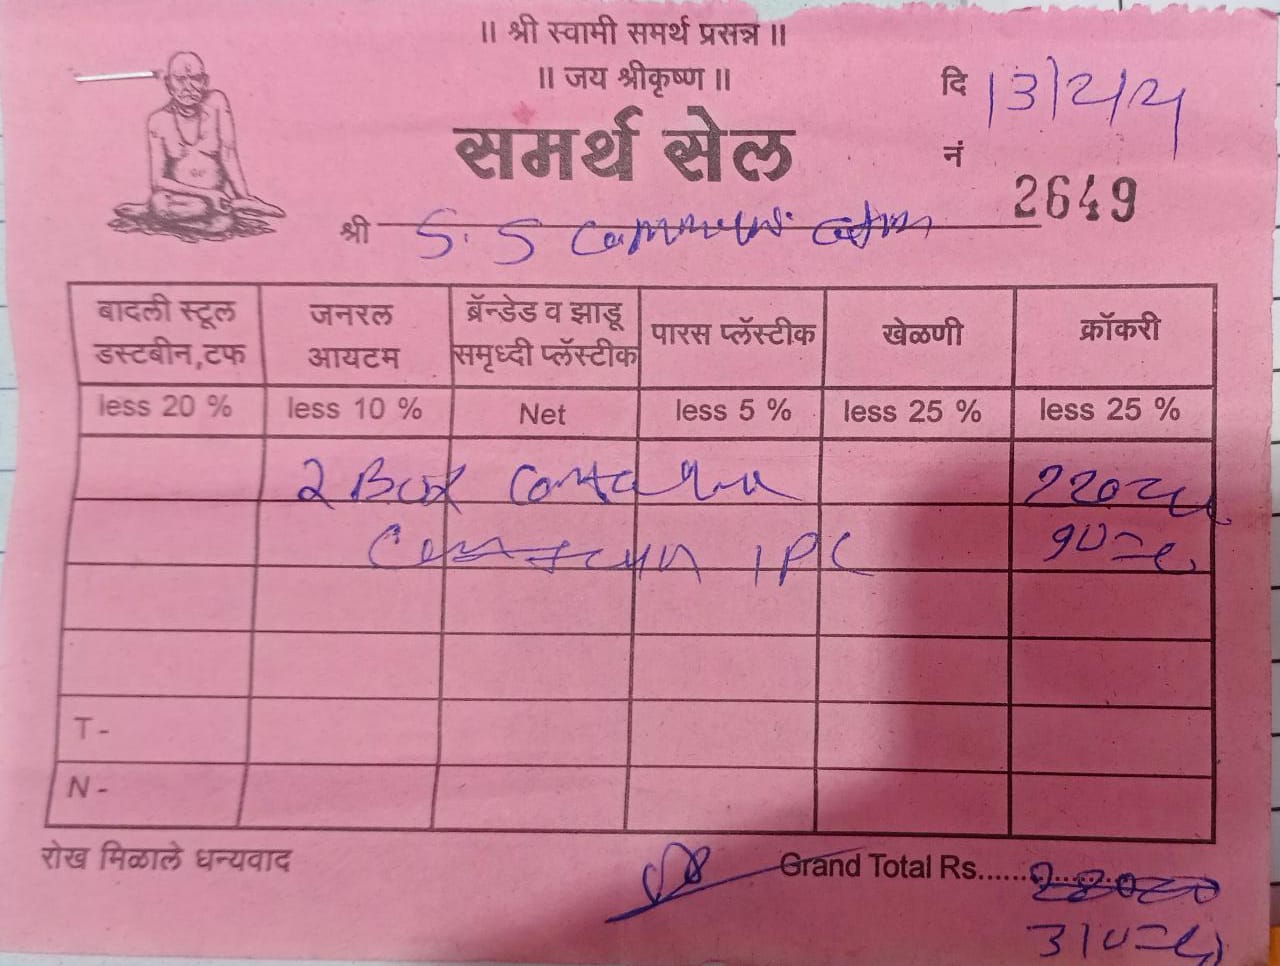 ॥ श्री स्वामी समर्थ प्रसन्न ॥
॥ जय श्रीकृष्ण ॥
दि 13/2/24
समर्थ सेल
नं 2649
श्री S. S
बादली स्टूल डस्टबीन,टफ जनरल आयटम ब्रॅन्डेड व झाडू समृध्दी प्लॅस्टीक पारस प्लॅस्टीक खेळणी क्रॉकरी
less 20 % less 10 % Net less 5 % less 25 % less 25 %
2 Box 220=00
1 PC 90=00
T -
N -
रोख मिळाले धन्यवाद Grand Total Rs...............
310=00